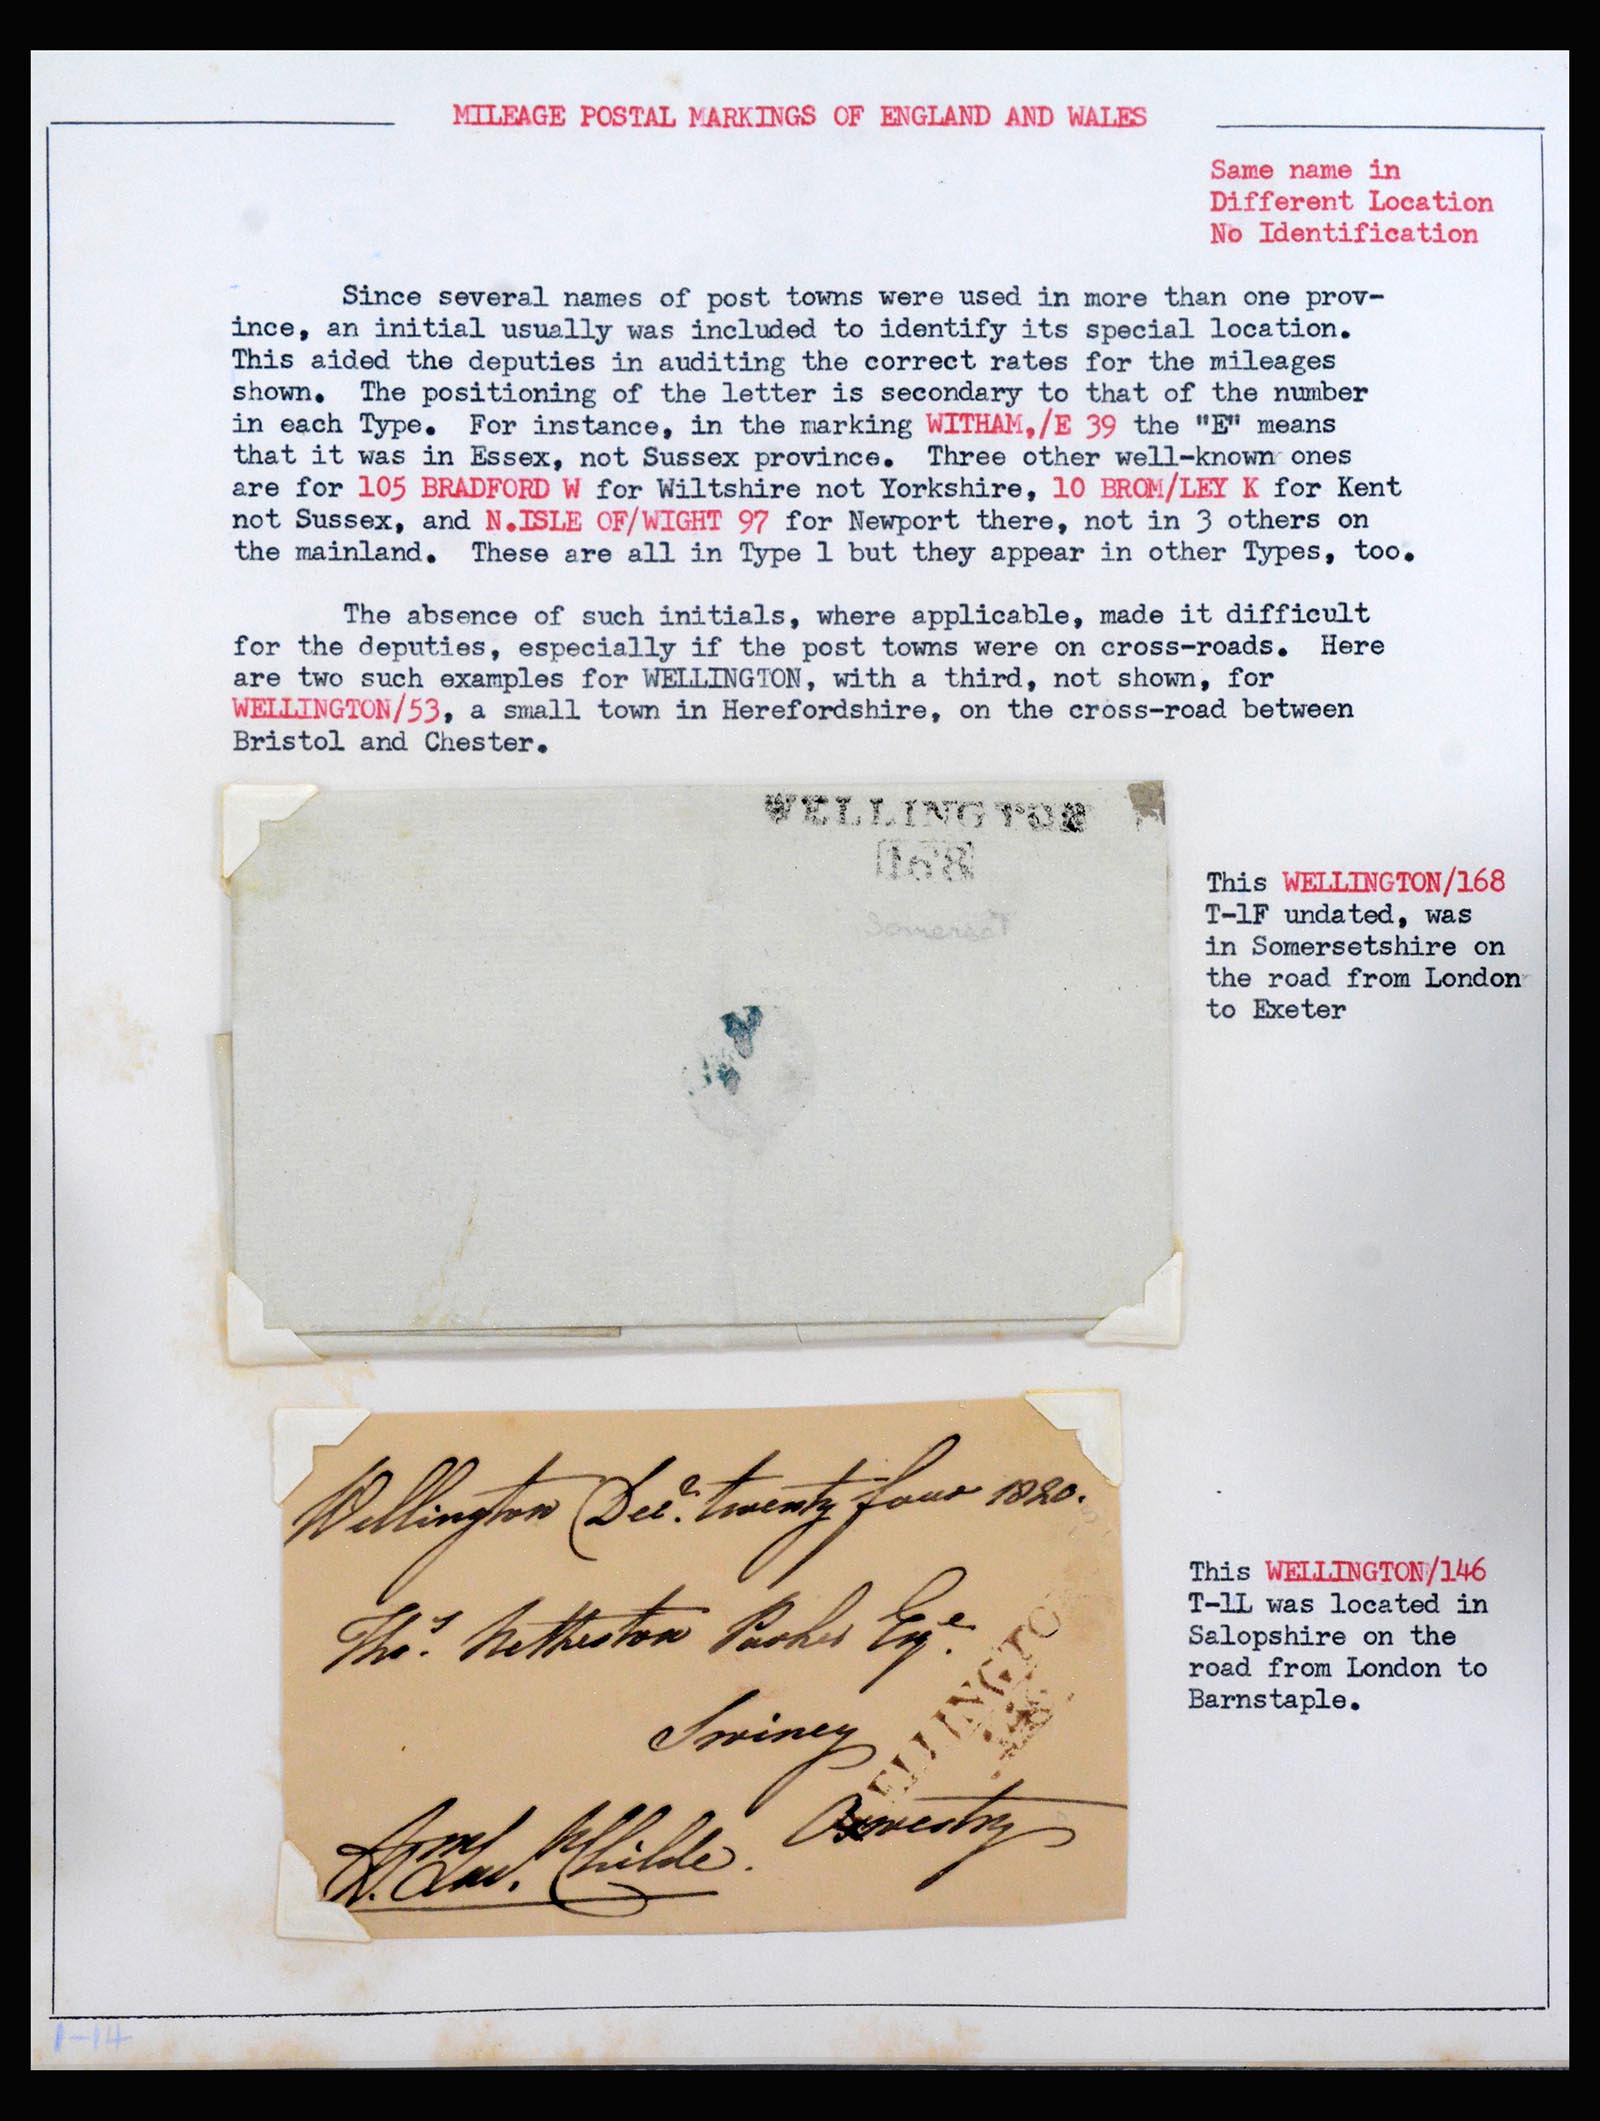 MILEAGE POSTAL MARKINGS OF ENGLAND AND WALES
Same name in
Different Location
No Identification
Since several names of post towns were used in more than one prov-
ince, an initial usually was included to identify its special location.
This aided the deputies in auditing the correct rates for the mileages
shown. The positioning of the letter is secondary to that of the number
in each Type. For instance, in the marking WITHAM,/E 39 the "E" means
that it was in Essex, not Sussex province. Three other well-known ones
are for 105 BRADFORD W for Wiltshire not Yorkshire, 10 BROM/LEY K for Kent
not Sussex, and N.ISLE OF/WIGHT 97 for Newport there, not in 3 others on
the mainland. These are all in Type 1 but they appear in other Types, too.
The absence of such initials, where applicable, made it difficult
for the deputies, especially if the post towns were on cross-roads. Here
are two such examples for WELLINGTON, with a third, not shown, for
WELLINGTON/53, a small town in Herefordshire, on the cross-road between
Bristol and Chester.
WELLINGTON
168
Somerset
This WELLINGTON/168
T-1F undated, was
in Somersetshire on
the road from London
to Exeter
Wellington Decr. twenty four 1820.
Thos. Netherton Parker Esqe.
Swiney
Oswestry
Childe.
ELLINGTO
This WELLINGTON/146
T-1L was located in
Salopshire on the
road from London to
Barnstaple.
1-14